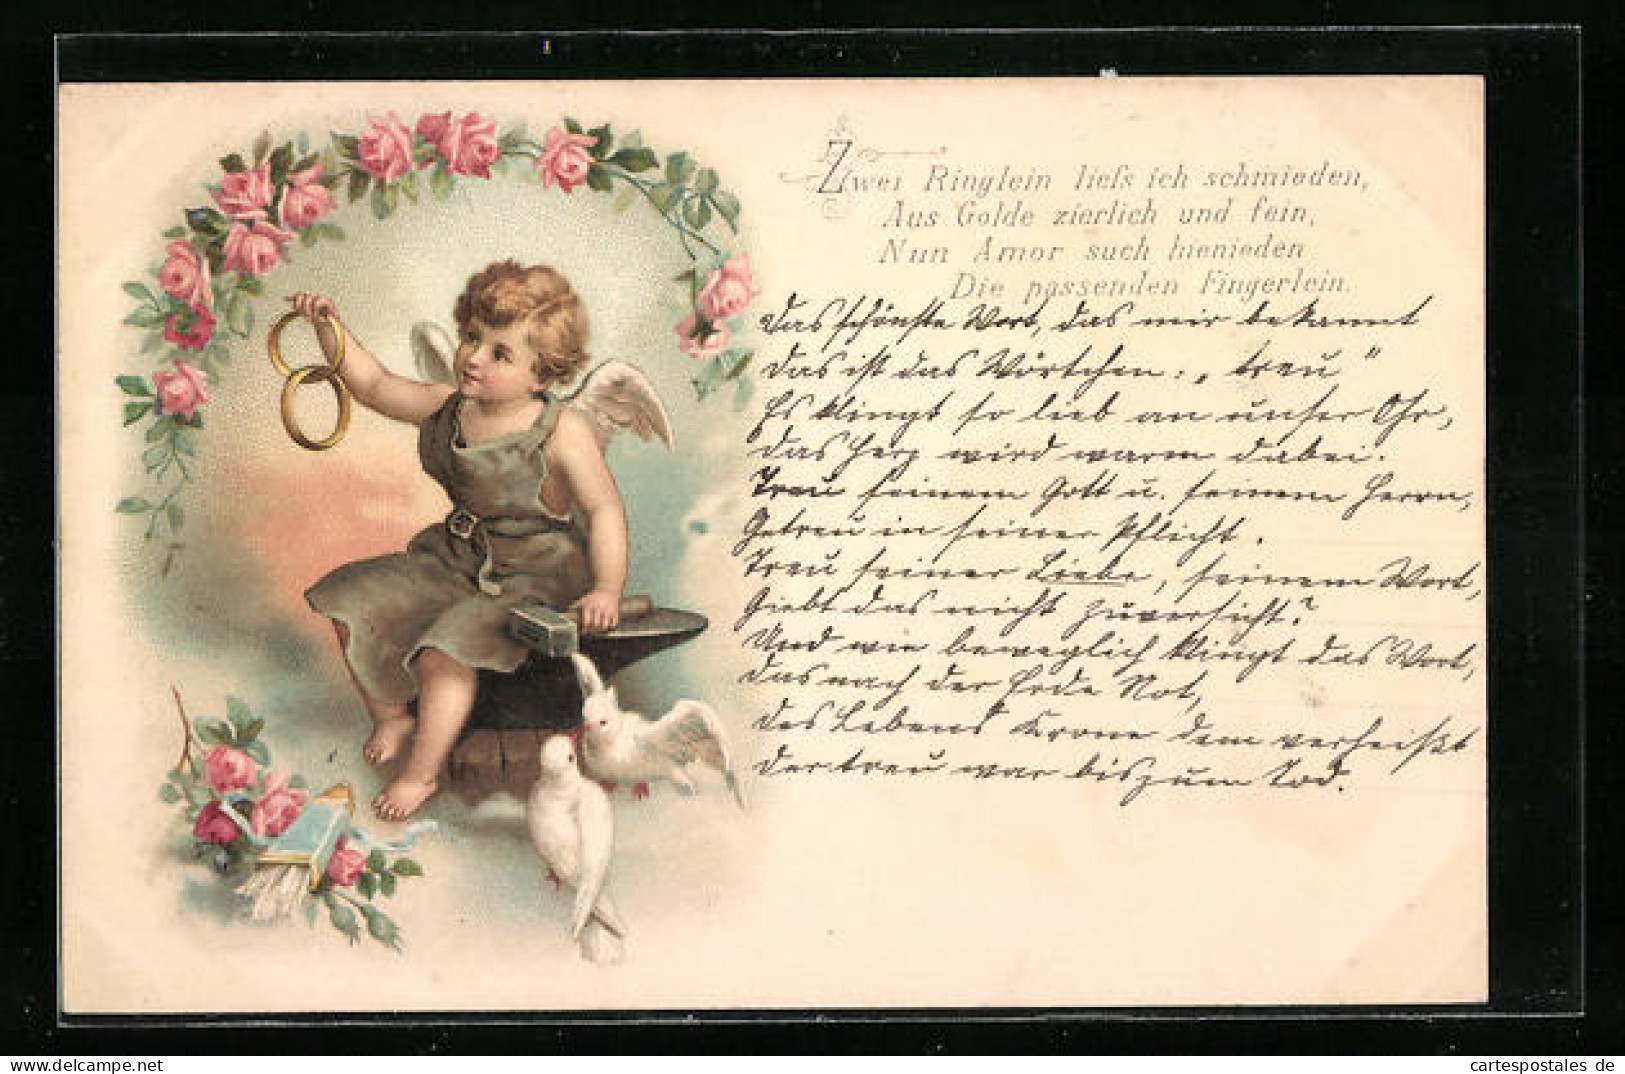 Zwei Ringlein liefs ich schmieden,
Aus Golde zierlich und fein,
Nun Amor such hienieden
Die passenden Fingerlein.
Das schönste Wort, das mir bekannt
das ist das Wörtchen: „treu"
Es klingt so lieb an unser Ohr,
das Herz wird warm dabei.
Treu seinem Gott u. seinem Herrn,
Getreu in seiner Pflicht.
Treu seiner Liebe, seinem Wort,
Giebt das nicht Zuversicht?
Und wie beweglich klingt das Wort,
das nach der Erde Not,
des Lebens Krone dem verheißt
der treu war bis zum Tod.
cartespostales de